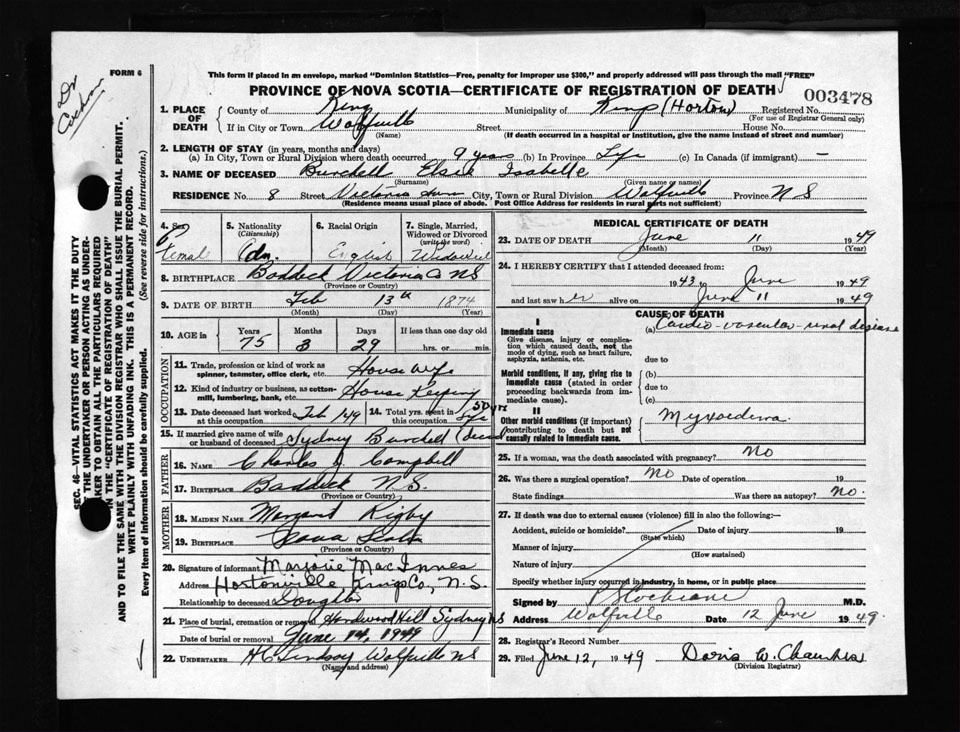 Dr
Cochran
FORM 6
This form if placed in an envelope, marked "Dominion Statistics—Free, penalty for improper use $300," and properly addressed will pass through the mail "FREE"
PROVINCE OF NOVA SCOTIA—CERTIFICATE OF REGISTRATION OF DEATH
003478
1. PLACE OF DEATH
County of King Municipality of Kings (Horton) Registered No.
(For use of Registrar General only)
If in City or Town Wolfville Street House No.
(Name) (If death occurred in a hospital or institution, give the name instead of street and number)
2. LENGTH OF STAY (in years, months and days)
(a) In City, Town or Rural Division where death occurred 9 years (b) In Province Life (c) In Canada (if immigrant) —
3. NAME OF DECEASED Burchell Elsie Isabelle
(Surname) (Given name or names)
RESIDENCE No. 8 Street Victoria City, Town or Rural Division Wolfville Province N S
(Residence means usual place of abode. Post Office Address for residents in rural parts not sufficient)
4. Sex Female
5. Nationality (Citizenship) Cdn.
6. Racial Origin English
7. Single, Married, Widowed or Divorced (write the word) Widowed
8. BIRTHPLACE Baddeck Victoria Co NS
(Province or Country)
9. DATE OF BIRTH Feb 13th 1874
(Month) (Day) (Year)
10. AGE in Years Months Days If less than one day old
75 3 29 hrs. or min.
OCCUPATION
11. Trade, profession or kind of work as spinner, teamster, office clerk, etc. House Wife
12. Kind of industry or business, as cotton-mill, lumbering, bank, etc. House Keeping
13. Date deceased last worked at this occupation Feb 1949 14. Total yrs. spent in this occupation 50 yrs
15. If married give name of wife or husband of deceased Sydney Burchell
FATHER
16. NAME Charles J. Campbell
17. BIRTHPLACE Baddeck N.S.
(Province or Country)
MOTHER
18. MAIDEN NAME Margaret Rigby
19. BIRTHPLACE Nova Scotia
(Province or Country)
20. Signature of informant Marjorie MacInnes
Address Hortonville Kings Co, N.S.
Relationship to deceased Daughter
21. Place of burial, cremation or removal Hardwood Hill Sydney NS
Date of burial or removal June 14, 1949
22. UNDERTAKER H C Lindsay Wolfville NS
(Name and address)
MEDICAL CERTIFICATE OF DEATH
23. DATE OF DEATH June 11 1949
(Month) (Day) (Year)
24. I HEREBY CERTIFY that I attended deceased from:
1943 to June 1949
and last saw her alive on June 11 1949
CAUSE OF DEATH
I
Immediate cause (a) Cardio-vascular-renal disease
Give disease, injury or complication which caused death, not the mode of dying, such as heart failure, asphyxia, asthenia, etc. due to
Morbid conditions, if any, giving rise to immediate cause (stated in order proceeding backwards from immediate cause).
(b)
due to
(c)
II
Other morbid conditions (if important) contributing to death but not causally related to immediate cause. Myxoedema
25. If a woman, was the death associated with pregnancy? No
26. Was there a surgical operation? No Date of operation 19
State findings Was there an autopsy? No.
27. If death was due to external causes (violence) fill in also the following:—
Accident, suicide or homicide? Date of injury 19
(State which)
Manner of injury
(How sustained)
Nature of injury
Specify whether injury occurred in industry, in home, or in public place
Signed by Cochrane M.D.
Address Wolfville Date 12 June 1949.
28. Registrar's Record Number
29. Filed June 12, 1949 Doris W. Chambers
(Division Registrar)
SEC. 46—VITAL STATISTICS ACT MAKES IT THE DUTY
OF THE UNDERTAKER OR PERSON ACTING AS UNDER-
TAKER TO OBTAIN ALL THE PARTICULARS REQUIRED
IN THE "CERTIFICATE OF REGISTRATION OF DEATH"
AND TO FILE THE SAME WITH THE DIVISION REGISTRAR WHO SHALL ISSUE THE BURIAL PERMIT.
WRITE PLAINLY WITH UNFADING INK. THIS IS A PERMANENT RECORD.
Every item of information should be carefully supplied. (See reverse side for instructions.)